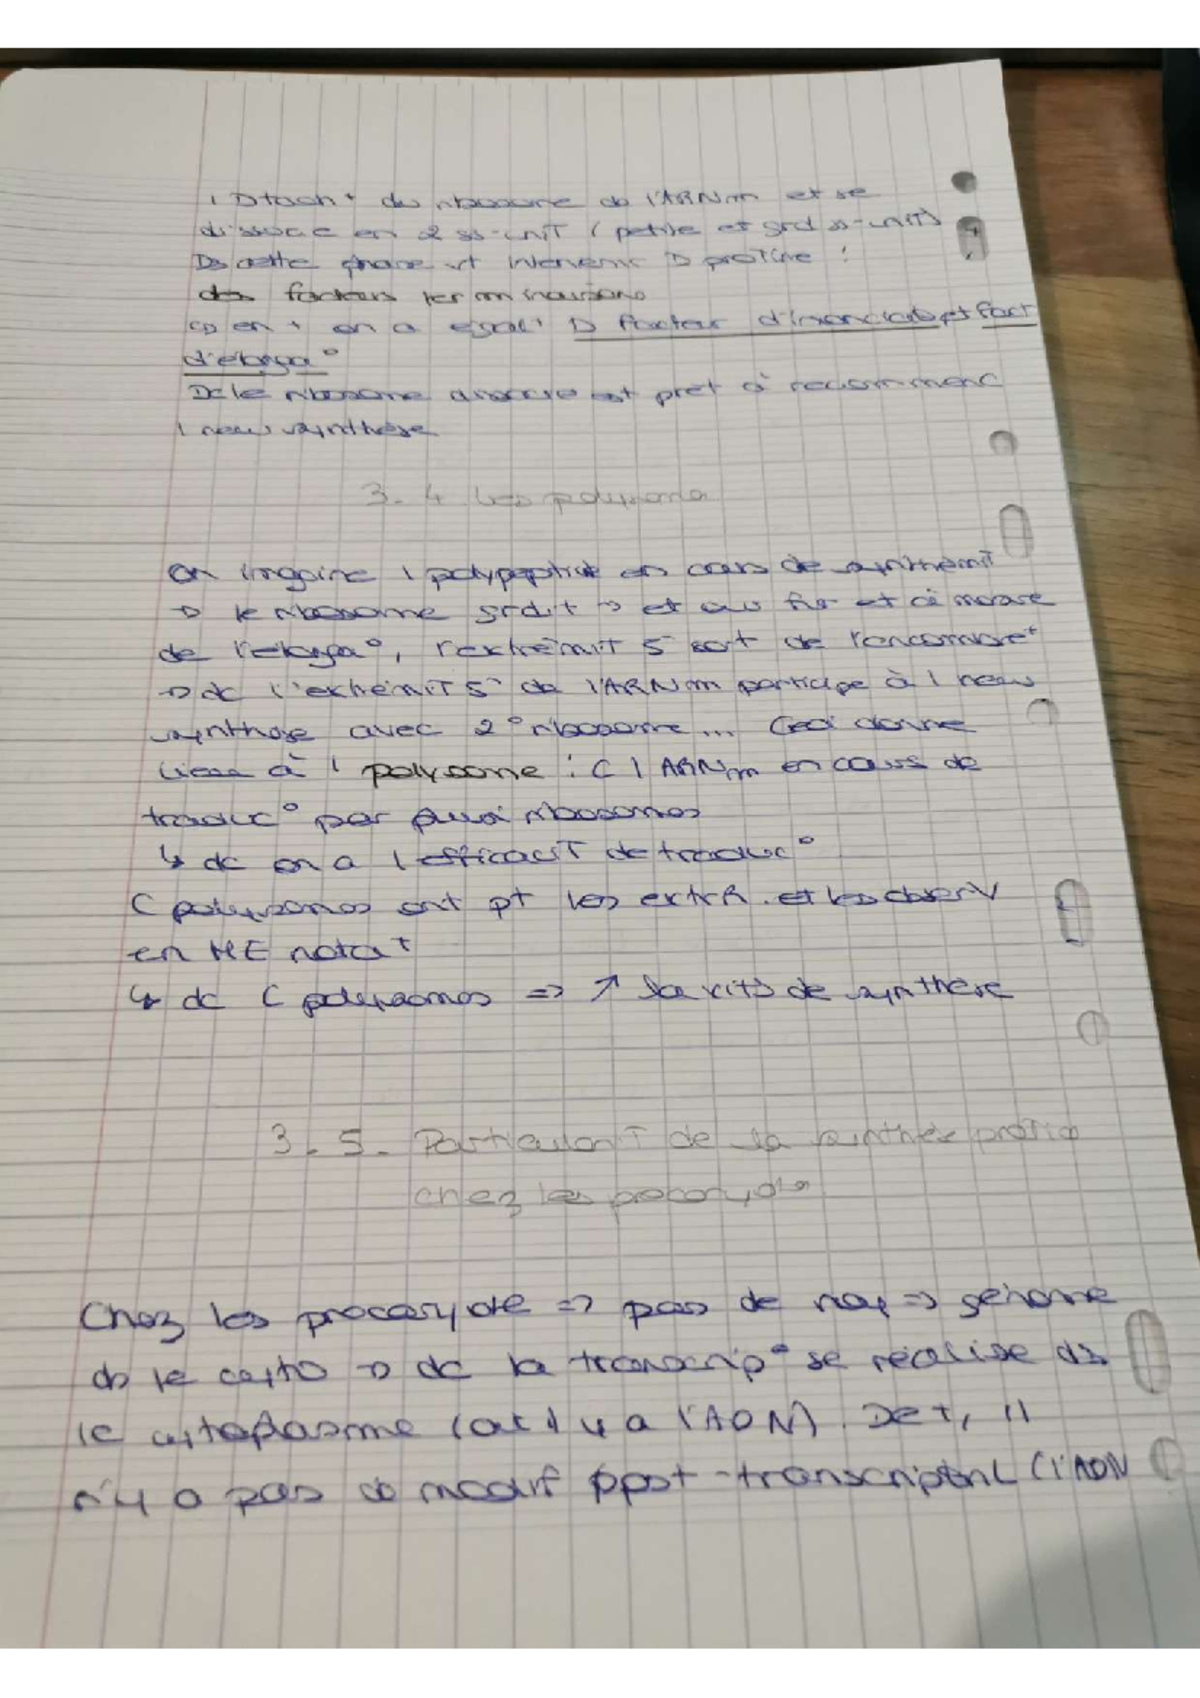 1 Dtach+ du ribosome de l'ARNm et se
dissocie en 2 ss-uniT (petite et grd ss-uniT)
Ds cette phase st intervenir D proTine :
des facteurs terminaisons
en + on a egal+ D facteur d'initiat° et fact
d'élonga°
Dc le ribosome dissocié est pret à recommenc
1 new synthèse
3. 4 Les polysome
On imagine 1 polypeptide en cours de synthèse
→ le ribosome grdit → et au fur et à mesure
de l'élonga°, l'extrémiT 5' sort de l'encombre+
→ dc l'extrémiT 5' de l'ARNm participe à 1 new
synthèse avec 2° ribosome... Ceci donne
lieu à 1 polysome : C 1 ARNm en cours de
traduc° par ribosomes
↳ dc on a 1 efficaciT de traduc°
C polysomes ont pt les extrR. et les observ
en ME nota+
↳ dc C polysomes => ↗ la vits de synthèse
3. 5. ParticulariT de la synthèse protéiq
chez les procaryote
Chez les procaryote => pas de noy => génome
ds le cyto → dc la transcrip° se réalise ds
le cytoplasme (où il y a l'ADN). De +, il
n'y a pas de modif post-transcriptionL (l'ADN